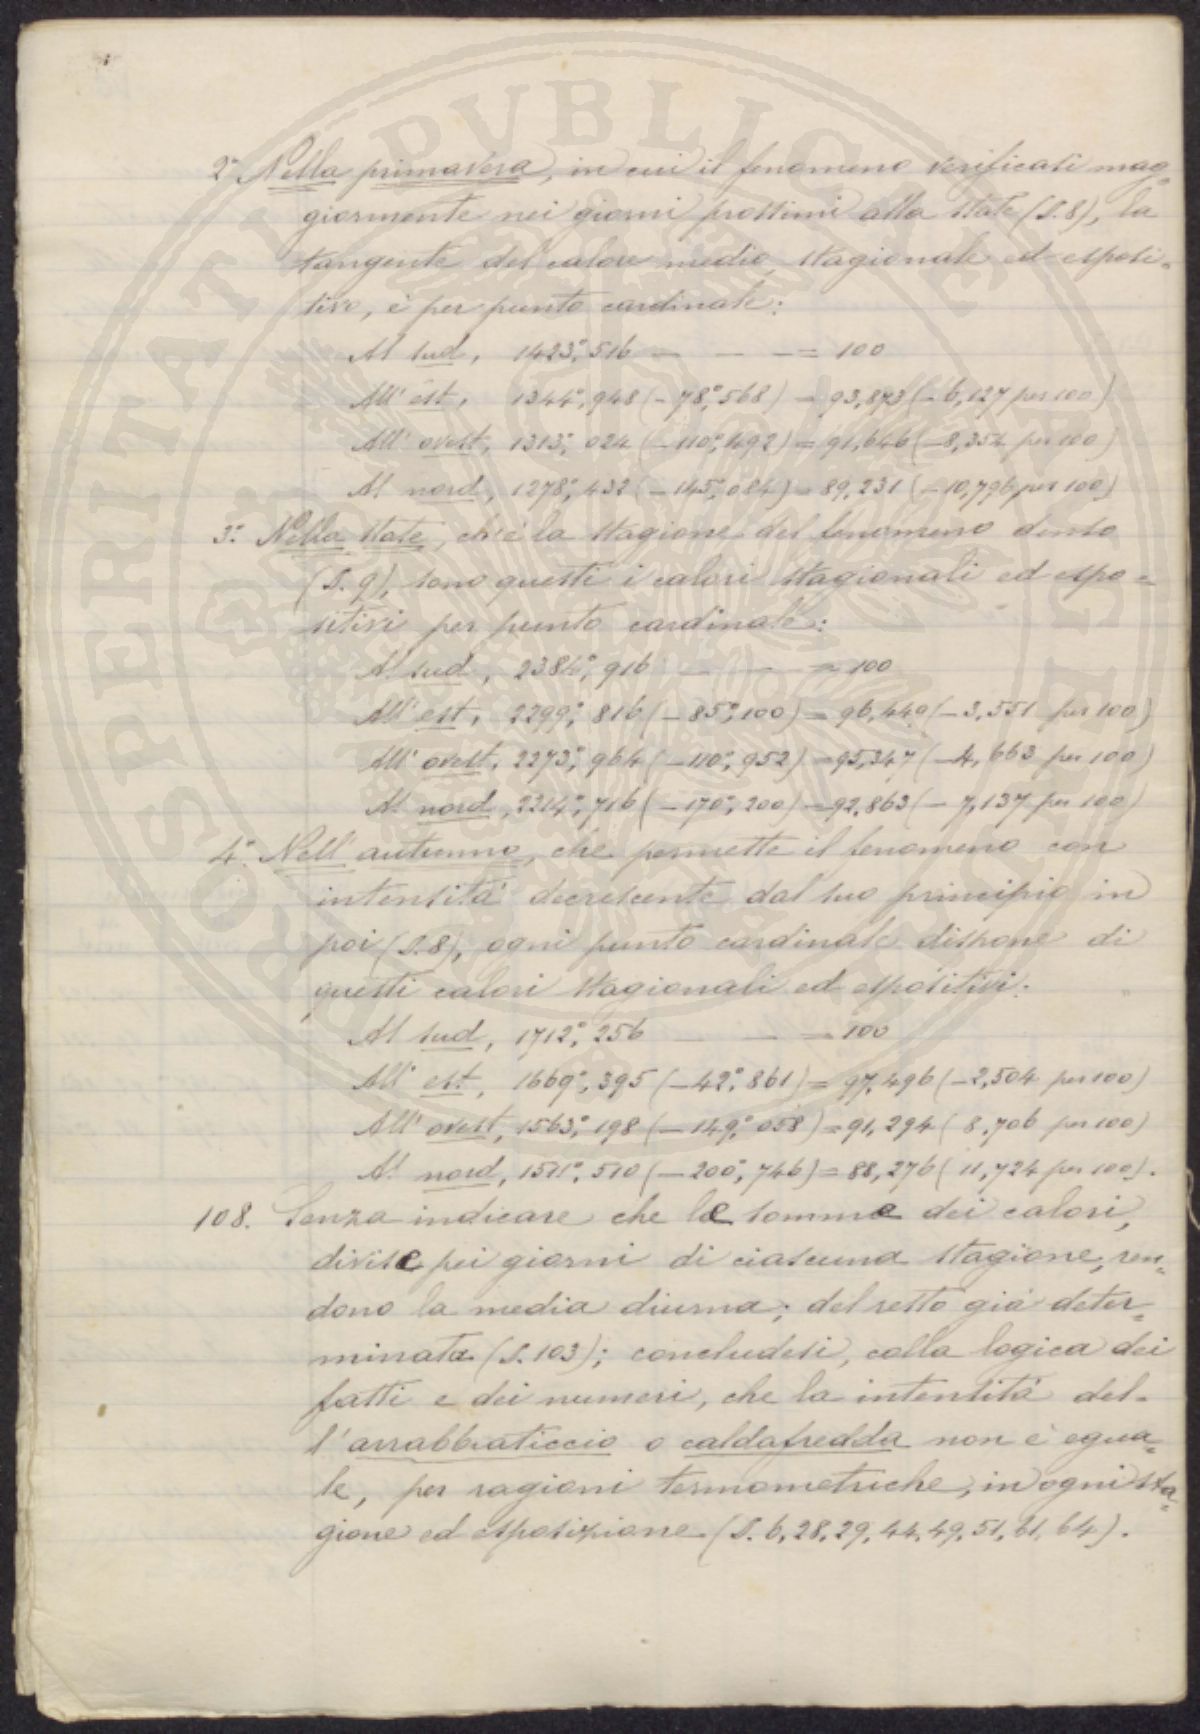 2.° Nella primavera, in cui il fenomeno verificasi mag-
giormente nei giorni prossimi alla state (§. 8), la
tangente del calore medio, stagionale ed esposi-
tivo, è per punto cardinale:
Al sud, 1423°,516 — — — = 100
All' est, 1344°,948 (— 78°,568) = 93,873 (— 6,127 per 100)
All' ovest, 1313°,024 (— 110°,492) = 91,646 (— 8,354 per 100)
Al nord, 1278°,432 (— 145°,084) = 89,231 (— 10,796 per 100)
3.° Nella state, ch'è la stagione del fenomeno
(§. 9), sono questi i calori stagionali ed espo-
sitivi per punto cardinale:
Al sud, 2384°,916 — — = 100
All' est, 2299°,816 (— 85°,100) = 96,449 (— 3,551 per 100)
All' ovest, 2273°,964 (— 110°,952) = 95,347 (— 4,663 per 100)
Al nord, 2214°,716 (— 170°,200) = 92,863 (— 7,137 per 100)
4.° Nell' autunno, che permette il fenomeno con
intensità decrescente dal suo principio in
poi (§. 8), ogni punto cardinale dispone di
questi calori stagionali ed espositivi:
Al sud, 1712°,256 — — = 100
All' est, 1669°,395 (— 42°,861) = 97,496 (— 2,504 per 100)
All' ovest, 1563°,198 (— 149°,058) = 91,294 ( 8,706 per 100)
Al nord, 1511°,510 (— 200°,746) = 88,276 ( 11,724 per 100).
108. Senza indicare che le somme dei calori,
divise pei giorni di ciascuna stagione, ren-
dono la media diurna; del resto già deter-
minata (§. 103); concludesi, colla logica dei
fatti e dei numeri, che la intensità del-
l'arrabbiaticcio o caldafredda non è egua-
le, per ragioni termometriche, in ogni sta-
gione ed esposizione (§. 6, 28, 29, 44, 49, 51, 61, 64).
PROSPERITATI PVBLICAE AVGENDAE